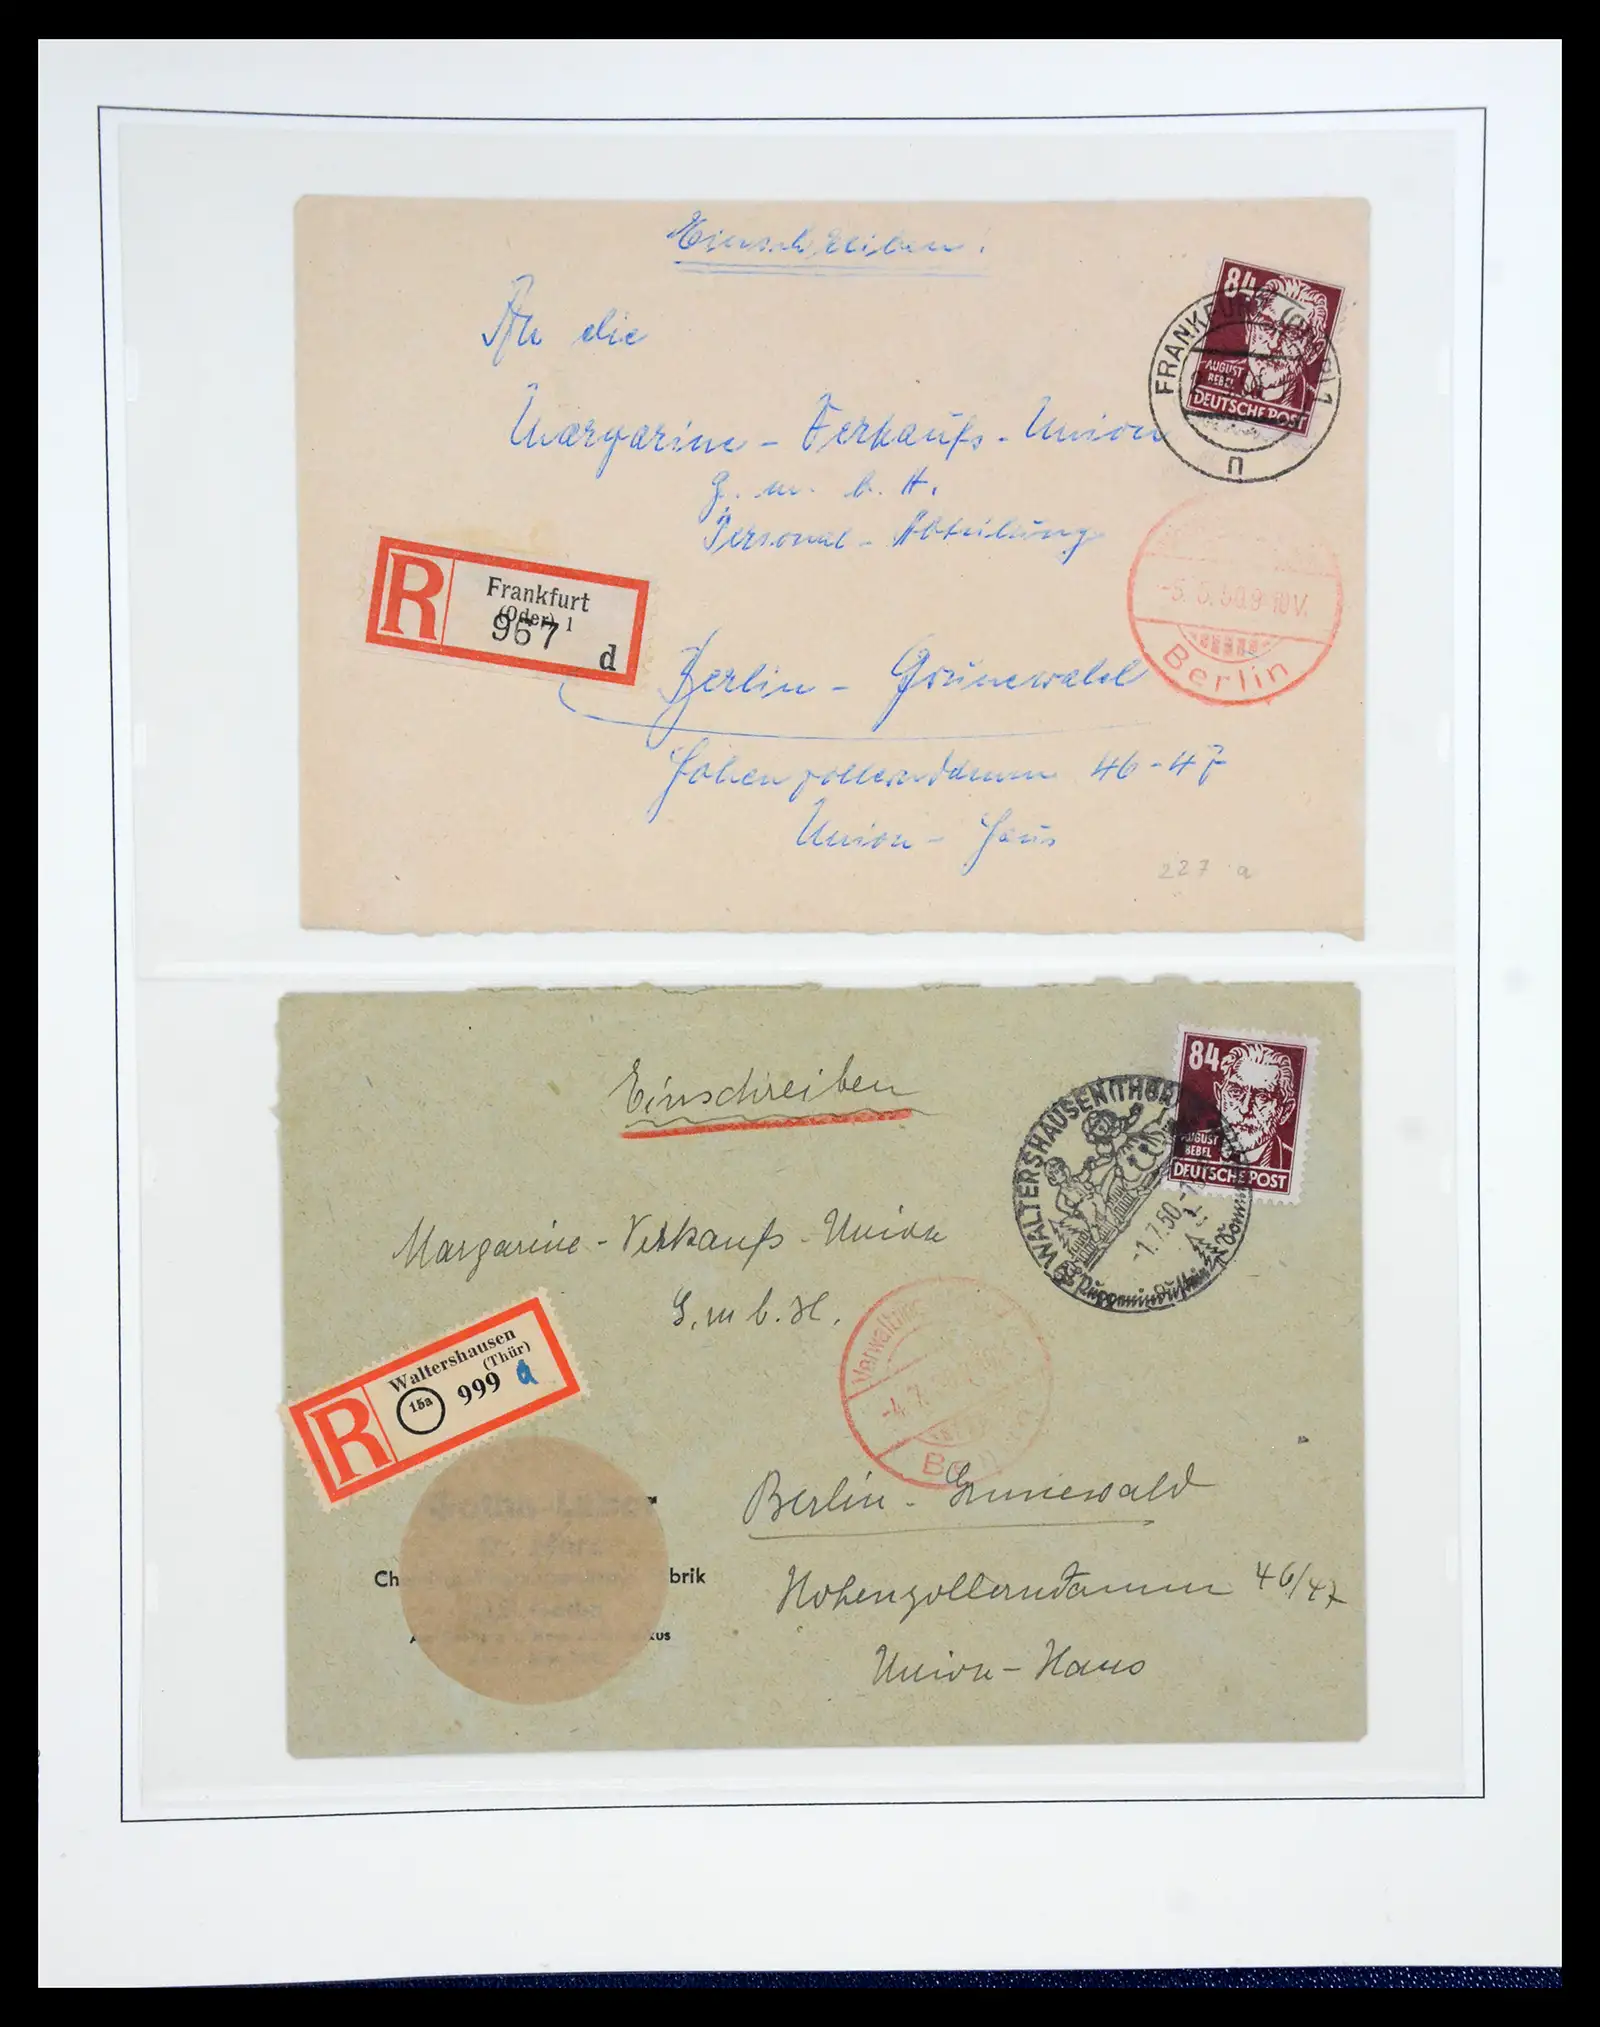 Einschreiben!
84
AUGUST
BEBEL
DEUTSCHE POST
FRANKFURT (ODER) 1
n
An die
Margarine-Verkaufs-Union
G. m. b. H.
Personal-Abteilung
-5.5.50.9-10V.
Berlin
R
Frankfurt
(Oder) 1
967
d
Berlin-Grunewald
Hohenzollerndamm 46-47
Union-Haus
227 a
Einschreiben
84
AUGUST
BEBEL
DEUTSCHE POST
WALTERSHAUSEN (THÜR
-1.7.50-1
Puppenindustrie
Margarine-Verkaufs-Union
G. m. b. H.
R
Waltershausen
(Thür)
15a
999 a
-4.7.
Berlin
Ch
brik
kus
Berlin-Grunewald
Hohenzollerndamm 46/47
Union-Haus